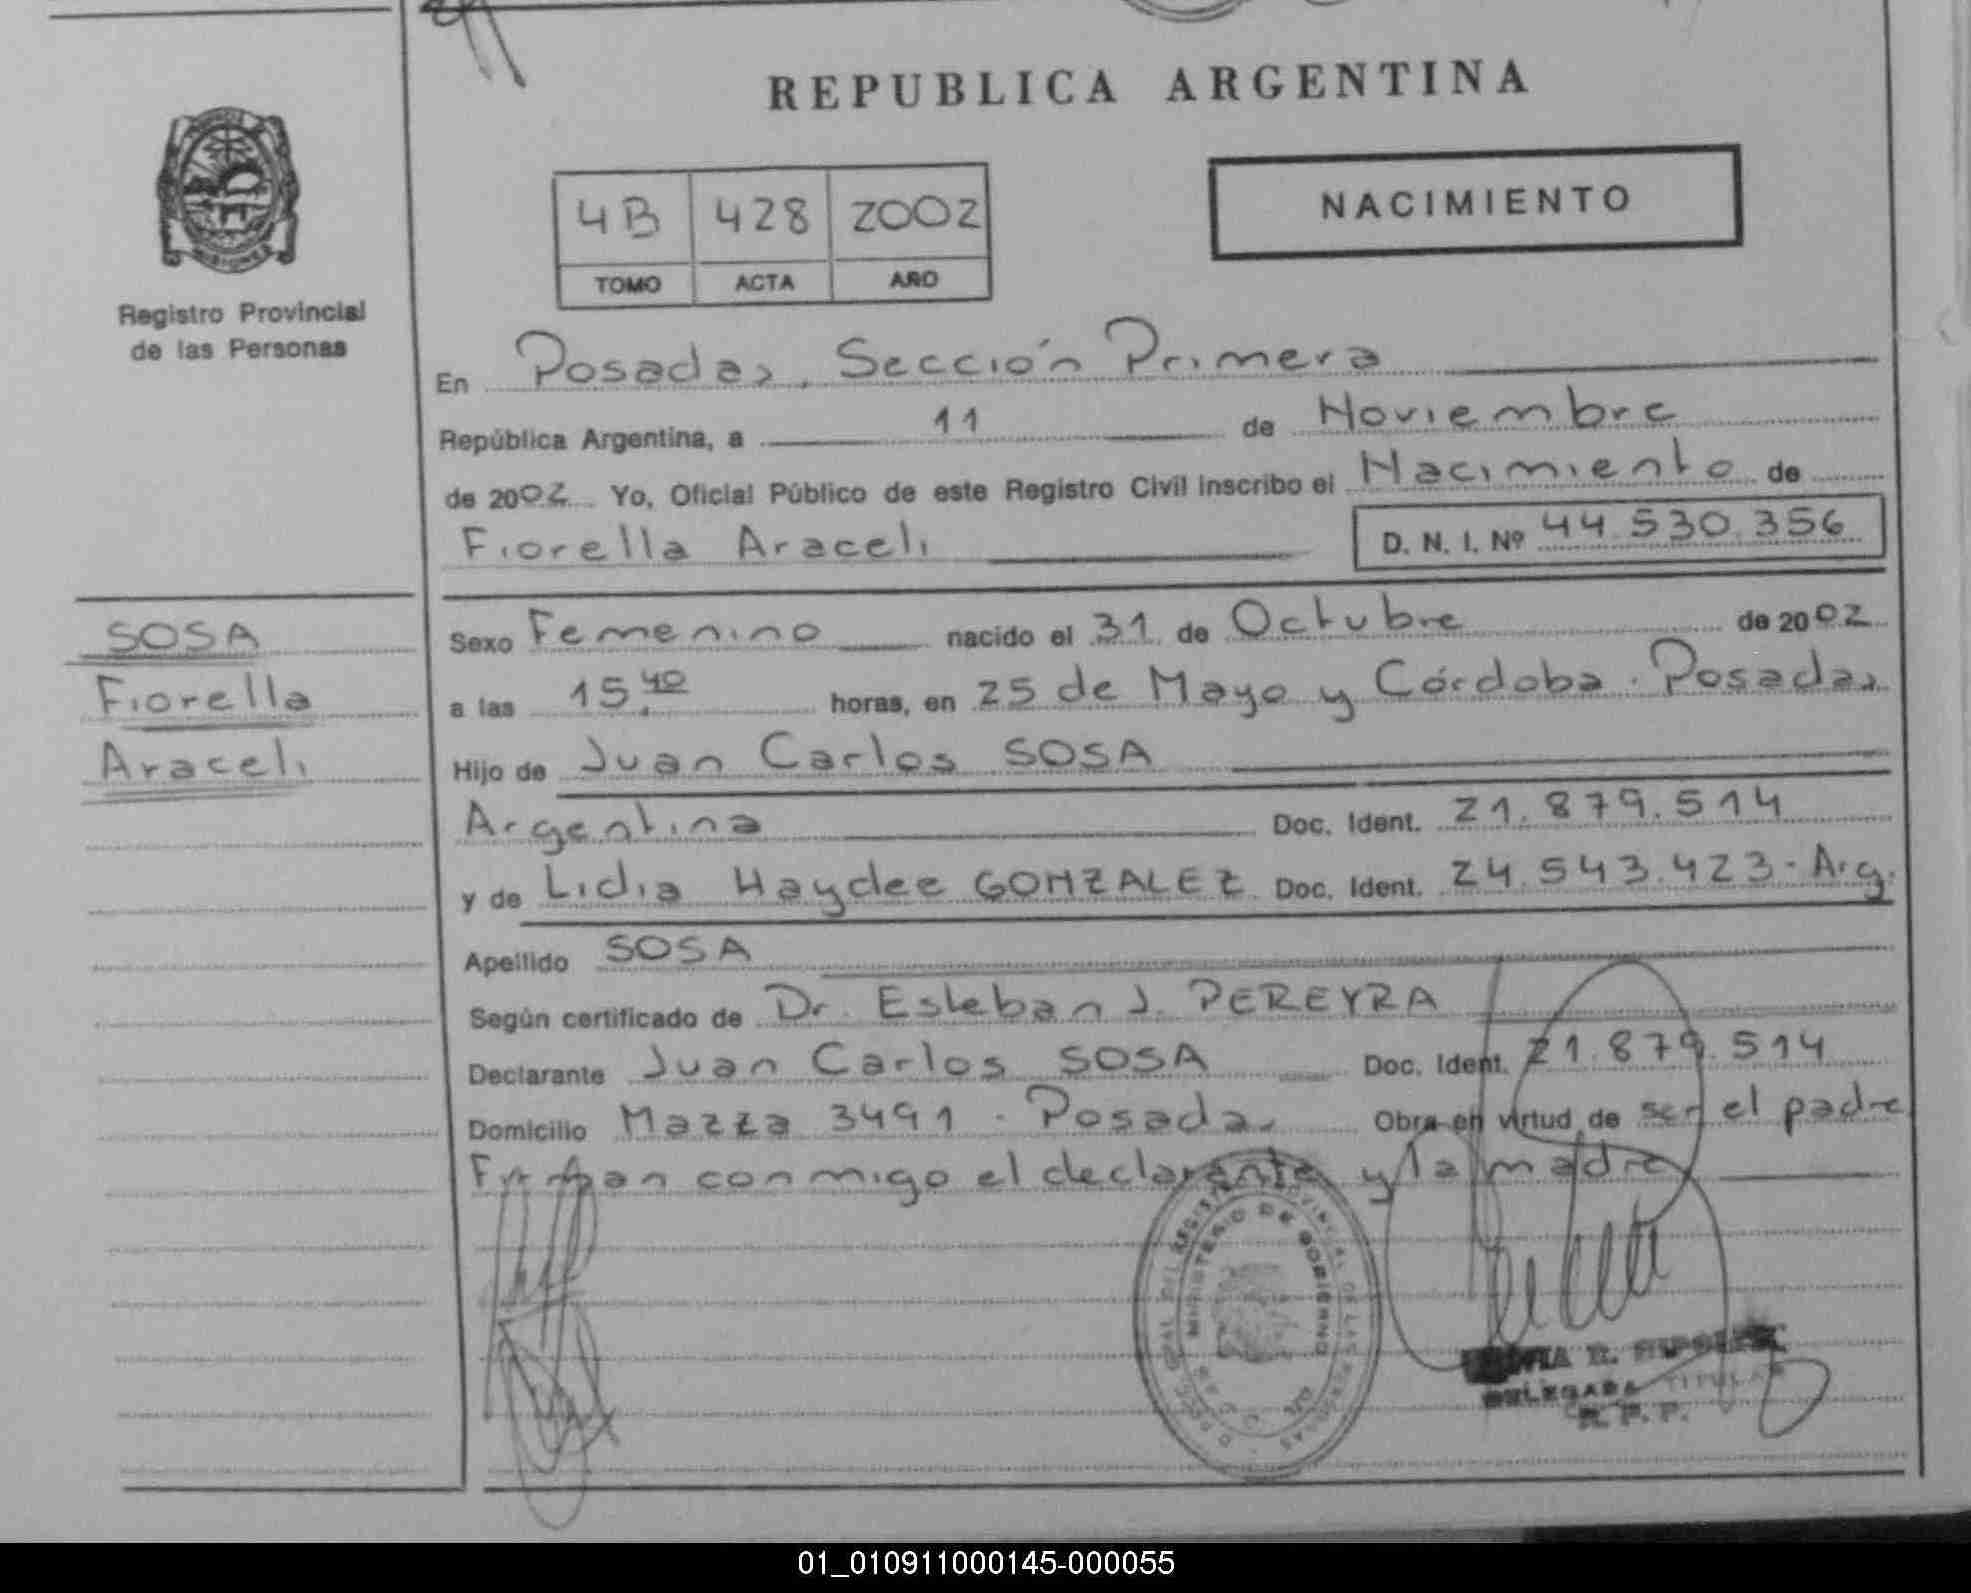 REPUBLICA ARGENTINA
NACIMIENTO
4B 428 2002
TOMO ACTA AÑO
Registro Provincial
de las Personas
En Posadas, Sección Primera
República Argentina, a 11 de Noviembre
de 2002 Yo, Oficial Público de este Registro Civil inscribo el Nacimiento de
Fiorella Araceli D. N. I. Nº 44.530.356
SOSA
Fiorella
Araceli
Sexo Femenino nacido el 31 de Octubre de 2002
a las 15.40 horas, en 25 de Mayo y Córdoba. Posadas
Hijo de Juan Carlos SOSA
Argentina Doc. Ident. 21.879.514
y de Lidia Haydee GONZALEZ Doc. Ident. 24.543.423- Arg.
Apellido SOSA
Según certificado de Dr. Esteban J. PEREYRA
Declarante Juan Carlos SOSA Doc. Ident. 21.879.514
Domicilio Mazza 3491 - Posadas Obra en virtud de ser el padre
Firman conmigo el declarante y la madre
MINISTERIO DE GOBIERNO
DELEGADA TITULAR
R. P. P.
01_010911000145-000055